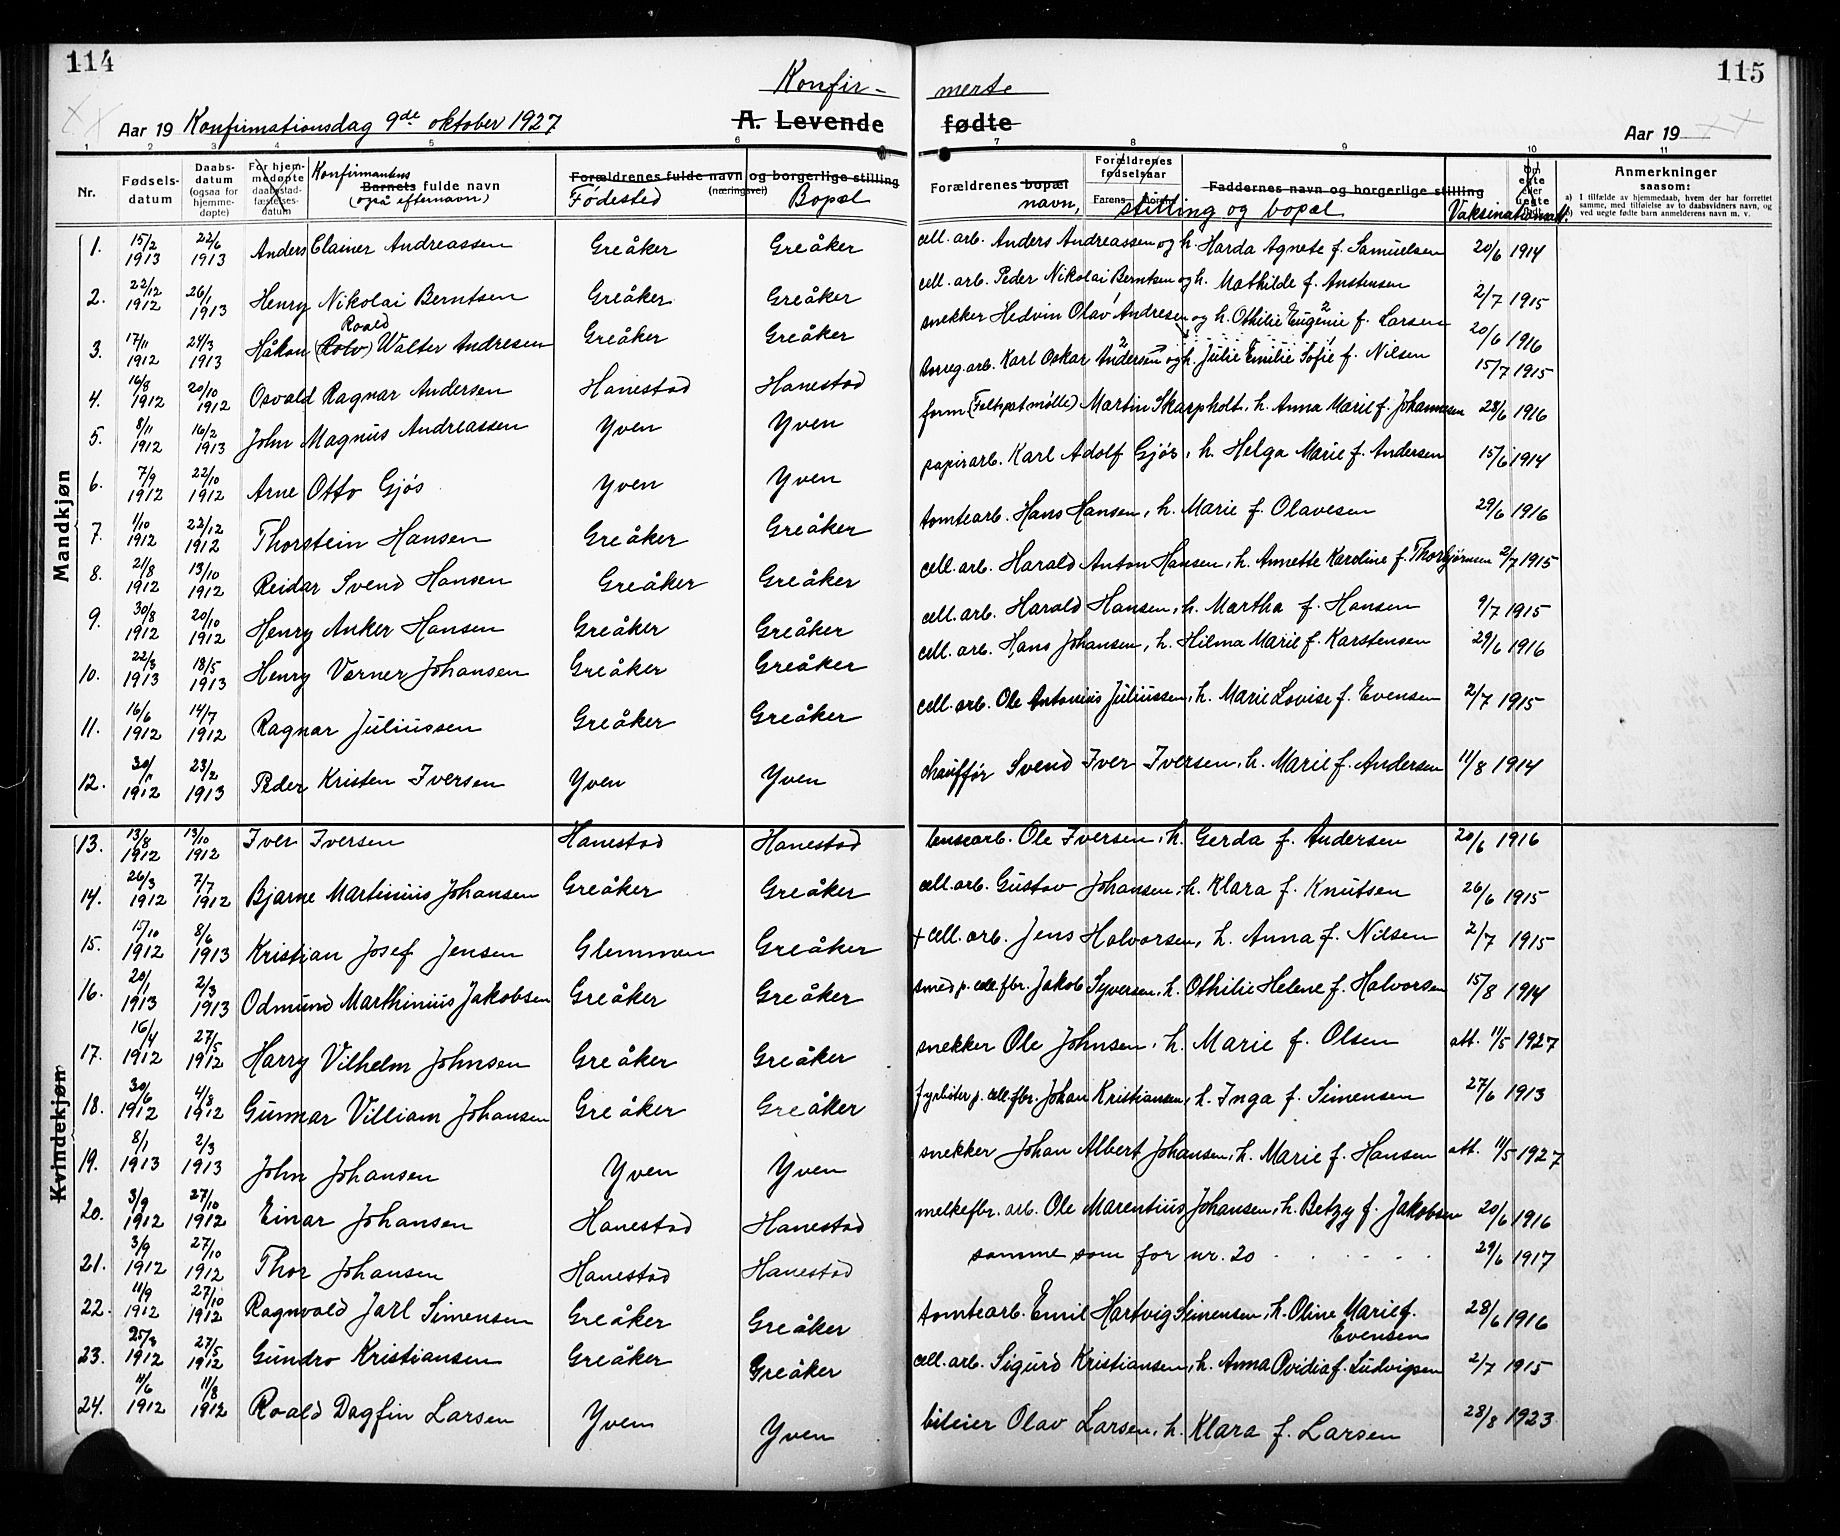 114
115
Konfir- merte
Aar 19 Konfirmationsdag 9de oktober 1927 A. Levende fødte Aar 19
1 2 3 4 5 6 7 8 9 10 11
Nr. Fødsels-datum Daabs-datum (ogsaa for hjemme-døpte) For hjem-medøpte daabsstad-fæstelses-datum Konfirmantens Barnets fulde navn (også efternavn) Forældrenes fulde navn og borgerlige stilling (næringsvei) Fødested Bopæl Forældrenes bopæl navn, Forældrenes fødselsaar Farens Morens stilling og bopæl Faddernes navn og borgerlige stilling Om egte eller uegte Vaksinationsatt. Anmerkninger saasom:
a) I tilfælde av hjemmedaab, hvem der har forrettet samme, med tilføielse av to daabsvidners navn, og
b) ved uegte fødte barn anmelderens navn m. v.
Mandkjøn
1. 15/2 1913 22/6 1913 Anders Elamer Andreassen Greåker Greåker cell. arb. Anders Andreassen og h. Harda Agnete f. Samuelsen 20/6 1914
2. 22/12 1912 26/1 1913 Henry Nikolai Berntsen Greåker Greåker cell. arb. Peder Nikolai Berntsen og h. Mathilde f. Anstensen 2/7 1915
3. 17/11 1912 24/3 1913 Håkon (Rolv) Roald Walter Andresen Greåker Greåker snekker Hedvin Olav Andresen og h. Othilie Eugenie f. Larsen 20/6 1916
4. 16/8 1912 20/10 1912 Osvald Ragnar Andersen Hanestad Hanestad Karl Oskar Andersen og h. Julie Emilie Sofie f. Nilsen 15/7 1915
5. 8/11 1912 16/2 1913 John Magnus Andreassen Yven Yven form (Feltspatmølle) Martin Skarpholt, h. Anna Marie f. Johannesen 28/6 1916
6. 7/9 1912 22/10 1912 Arne Otto Gjøs Yven Yven papirarb. Karl Adolf Gjøs, h. Helga Marie f. Andersen 15/6 1914
7. 1/10 1912 22/12 1912 Thorstein Hansen Greåker Greåker tomtearb. Hans Hansen, h. Marie f. Olavesen 29/6 1916
8. 21/8 1912 13/10 1912 Reidar Svend Hansen Greåker Greåker cell. arb. Harald Anton Hansen, h. Annette Karoline f. Thorbjørnsen 2/7 1915
9. 30/8 1912 20/10 1912 Henry Anker Hansen Greåker Greåker cell. arb. Harald Hansen, h. Martha f. Hansen 9/7 1915
10. 22/3 1913 18/5 1913 Henry Verner Johansen Greåker Greåker cell. arb. Hans Johansen, h. Hilma Marie f. Karstensen 29/6 1916
11. 16/6 1912 14/7 1912 Ragnar Juliussen Greåker Greåker cell. arb. Ole Antonius Juliussen, h. Marie Lovise f. Evensen 2/7 1915
12. 30/11 1912 23/2 1913 Peder Kristen Iversen Yven Yven chauffør Svend Iver Iversen, h. Marie f. Andersen 11/8 1914
Kvindekjøn
13. 13/8 1912 13/10 1912 Iver Iversen Hanestad Hanestad lensearb. Ole Iversen, h. Gerda f. Andersen 20/6 1916
14. 26/3 1912 7/7 1912 Bjarne Martinius Johansen Greåker Greåker cell. arb. Gustav Johansen, h. Klara f. Knutsen 26/6 1915
15. 15/10 1912 8/6 1913 Kristian Josef Jensen Glemmen Greåker + cell. arb. Jens Halvorsen, h. Anna f. Nilsen 2/7 1915
16. 20/1 1913 2/3 1913 Odmund Marthinius Jakobsen Greåker Greåker smed p. cell.fbr. Jakob Syversen, h. Othilie Helene f. Halvorsen 15/8 1914
17. 16/4 1912 27/5 1912 Harry Vilhelm Johnsen Greåker Greåker snekker Ole Johnsen, h. Marie f. Olsen att. 11/5 1927
18. 30/6 1912 4/8 1912 Gunnar Villiam Johansen Greåker Greåker fyrbøter p. cell.fbr. Johan Kristiansen, h. Inga f. Simensen 27/6 1913
19. 8/1 1913 2/3 1913 John Johansen Yven Yven snekker Johan Albert Johansen, h. Marie f. Hansen att. 11/5 1927
20. 3/9 1912 27/10 1912 Einar Johansen Hanestad Hanestad melkefbr. arb. Ole Marentius Johansen, h. Betzy f. Jakobsen 20/6 1916
21. 3/9 1912 27/10 1912 Thor Johansen Hanestad Hanestad samme som for nr. 20 29/6 1917
22. 11/9 1912 27/10 1912 Ragnvald Jarl Simensen Greåker Greåker tomtearb. Emil Hartvig Simensen, h. Oline Marie f. Evensen 28/6 1916
23. 25/3 1912 27/5 1912 Gundro Kristiansen Greåker Greåker cell. arb. Sigurd Kristiansen, h. Anna Ovidia f. Ludvigsen 2/7 1915
24. 4/6 1912 11/8 1912 Roald Dagfin Larsen Yven Yven bileier Olav Larsen, h. Klara f. Larsen 28/8 1923